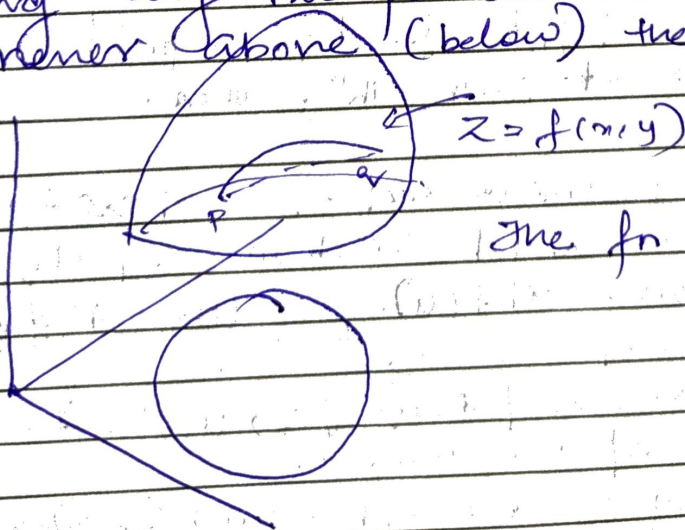 above (below) the
z = f(x, y)
P
Q
The fn